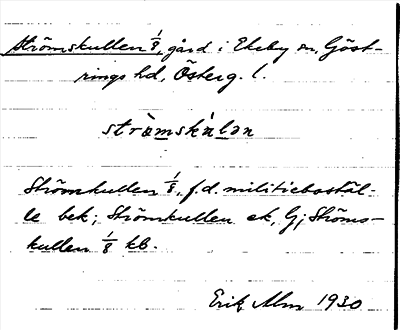 Strömskullen 1/8, gård i Ekeby sn, Göst-
rings hd, Österg. l.
strömskúlan
Strömkullen 1/8, f.d. militiebostäl-
le bek; Strömkullen ek, Gj Ströms-
kullen 1/8 kb.
Erik Alm 1930